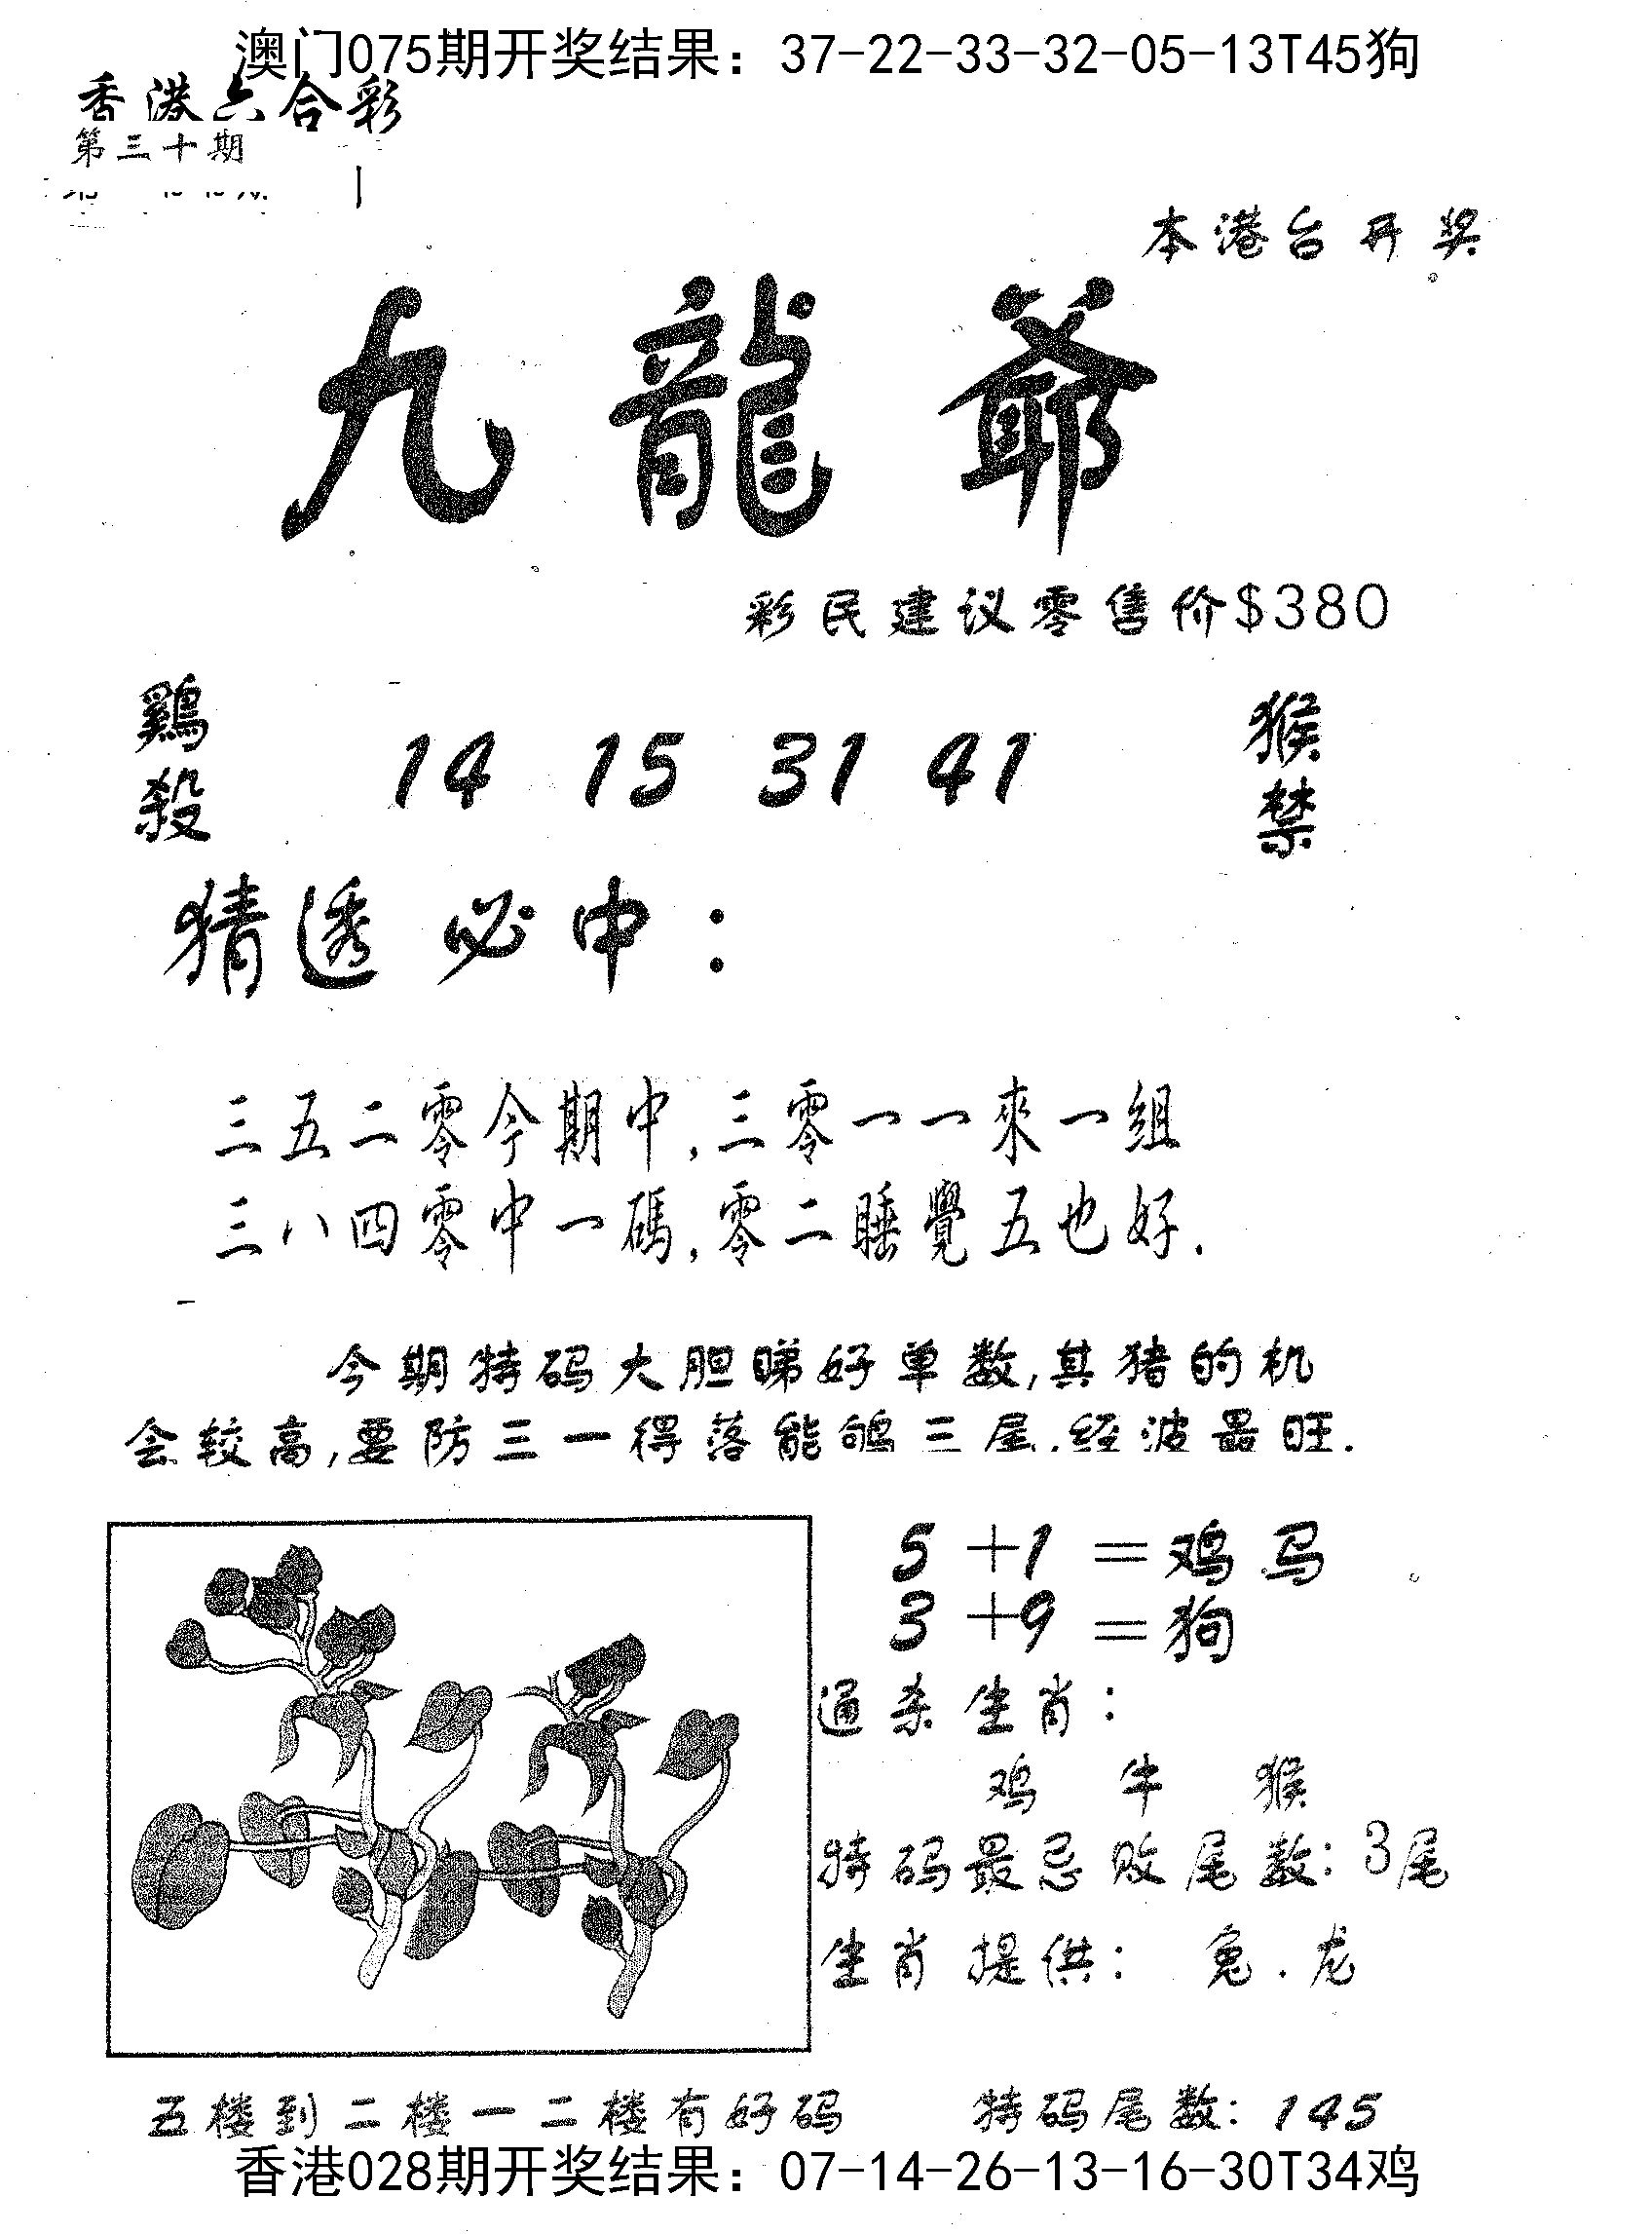 澳门075期开奖结果：37-22-33-32-05-13T45狗
香港六合彩
第三十期
本港台开奖
九龍爺
彩民建议零售价$380
鷄殺
14 15 31 41
猴禁
猜透必中：
三五二零今期中,三零一一來一組
三八四零中一碼,零二睡覺五也好.
今期特码大胆睇好单数,其猪的机
会较高,要防三一得落能够三尾.经波最旺.
5+1=鸡马
3+9=狗
通杀生肖：
鸡 牛 猴
特码最忌败尾数：3尾
生肖提供：兔.龙
五楼到二楼一二楼有好码 特码尾数：145
香港028期开奖结果：07-14-26-13-16-30T34鸡